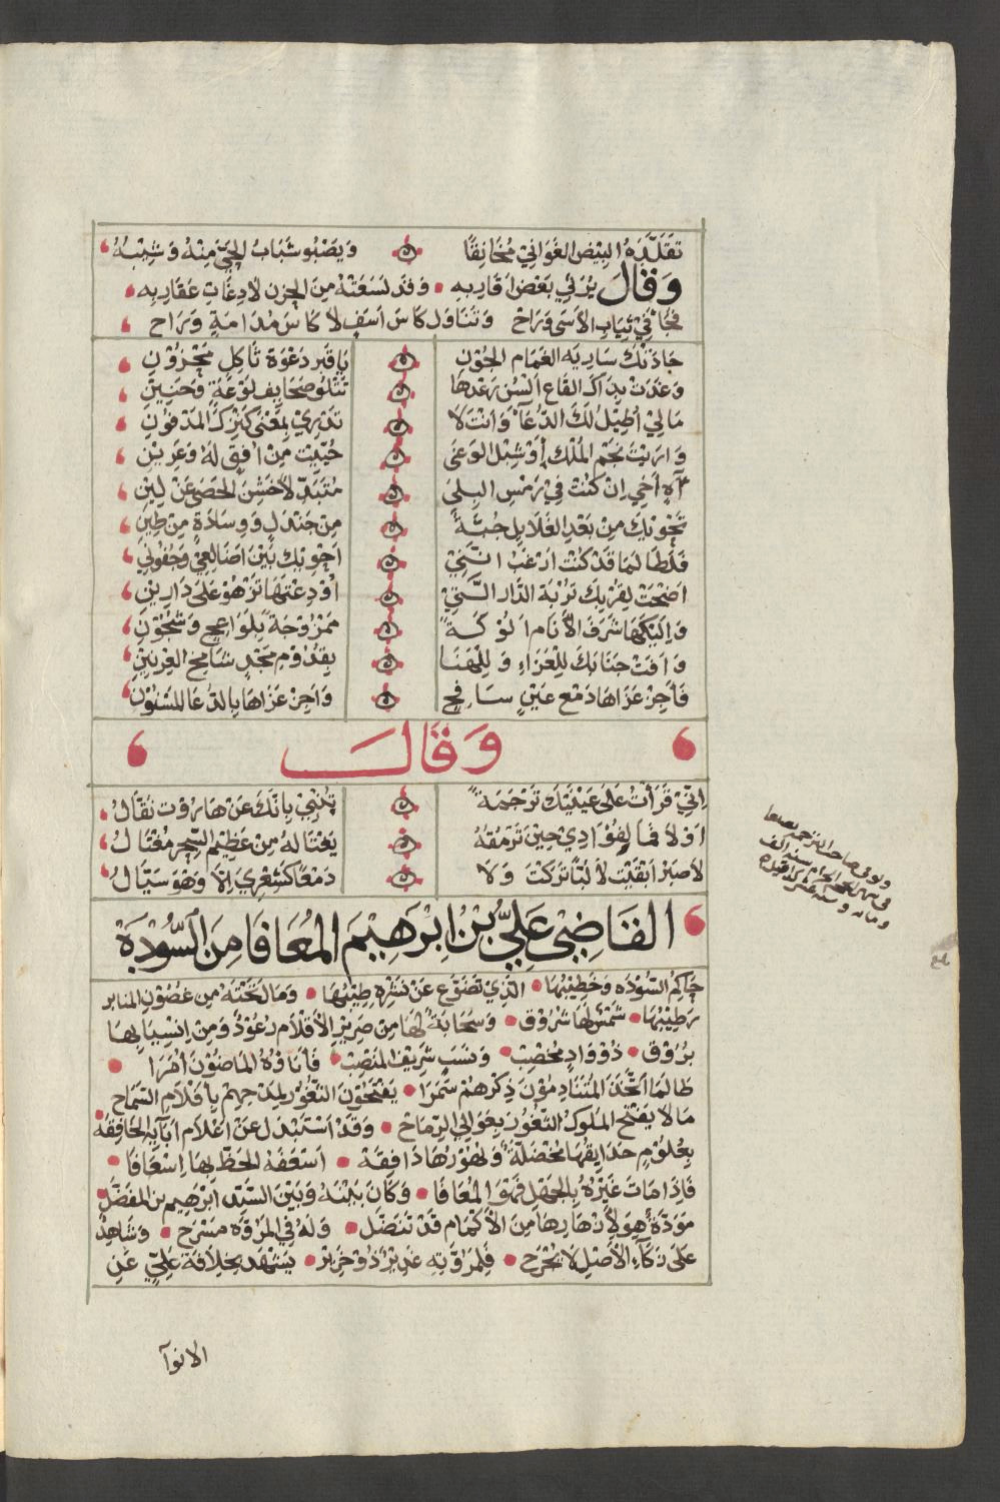 تَقَلَّدَهُ البِيْضُ الغَوَانِيْ مُخَانِقًا وَيَصْبُو شَبَابُ الحَيّ مِنْهُ وَشِيْبُهُ
وَقَالَ يَرْثِيْ بَعْضَ اَقَارِبِهِ وَقَدْ لَسَعَتْهُ مِنَ الحزن لادِغَاتِ عَقَارِبِه
فِي ثِيَابِ الاَسَى وَرَاحْ وَتَنَاوَل كَاسَ اَسَفٍ لاَ كَاسَ مُدَامَةٍ وَرَاح
جَادَتْكَ سَارِيَه الغَمَام الجُوْنِ يَا قَبر دَعْوَة ثَاكِلٍ مَحْزُوْنِ
وَغَدَتْ بِذَاكَ القَاع اَلْسُن رَعْدهَا تَتْلُو صَحَايِف لَوْعَةٍ وَحَنِيْنِ
مَا لِيْ اُطِيْلُ لَكَ الدُّعَآءَ وَاَنْتَ لاَ تَدْرِيْ بِمَعْنَى كَنْزِكَ المَدْفُونِ
وَارَيْتَ نَجْم المُلْكِ أوْ شِبْل الوَغَى حُيِّيْتَ مِنْ اُفُقٍ لَهُ وَعَرِيْنِ
آهٍ اَخِي اِنْ كُنْتَ فِيْ رَمْسِ البِلَى مُتَبَدِّلاً خَشِنَ الحَصَى عَنْ لِيْنِ
تَحْوِيْكَ مِنْ بَعْدِ الغَلايِلِ جُثَّةً مِنْ جَنْدَلٍ وَوِسَادَةٍ مِنْ طِيْنِ
فَلَطَالَمَا قَدْ كُنْتَ اَرْغَبُ اَنَّنِيْ اَحْوِيْكَ بَيْنَ اَضَالِعِيْ وَجُفُونِيْ
اَضْحَتْ بِقُرْبِكَ تُرْبَة الدَّار الَّتِيْ اُوْدِعْتَهَا تَزْهُوْ عَلَى دَارِيْنِ
وَاِلَيْكَهَا شَرَفَ الاَنَام اَلُوْكَةً مَمْزُوْجَةً بِلَوَاعِجٍ وَشُجُوْنِ
وَافَتْ جَنَابَكَ لِلْعَزَاءِ وَلِلْهَنَا بِقُدُوْمِ مَجْدٍ شَامِخِ العِرْنِيْنِ
فَاَجِزْ عَزَاهَا دَمْعَ عَيْنٍ سَافِحٍ وَاَجِزْ عَزَاهَا بِالدُّعَا المَسْنُوْنِ
وَقَالَ
اِنِّيْ قَرَأْتُ عَلَى عَيْنَيْكَ تَرْجَمَةً تُنْبِيْ بِاَنَّكَ عَنْ هَارُوْت نَقَّالُ
اَوْ لاَ فَمَا لِفُؤَادِيْ حِيْنَ تَرْمُقُهُ يَغْتَالهُ مِنْ عَظِيْم السِّحْرِ مُغْتَالُ
لاَ صَبْرَ اَبْقَيْتَ لاَ لُبًّا تَرَكْتَ وَلاَ دَمْعًا كَشِعْرِيَ اِلاَّ وَهْوَ سَيَّالُ
القَاضِيْ عَلِيُّ بْنُ اِبْرَهِيْمَ المُعَافَا مِنَ السُّوْدَةِ
حَاكِمُ السُّوْدَه وَخَطِيْبُهَا الَّذِيْ تَضَوَّع عَنْ نَشْرِهِ طِيْبُهَا وَمَالَتْ تَحْتَهُ مِن غُصُوْنِ المنابر
رَطِيْبُهَا شَمْسٌ لَهَا شُرُوْق وَسَحَابَةٌ لَهَا مِنْ صَرِيْرِ الاَقْلاَم رُعُوْدٌ وَمِنْ اِنْسِيَابِهَا
بُرُوْق ذُوْ وَادٍ مُخْصِبْ وَنَسَبٍ شَرِيْفِ المَنْصِبْ فَأَبَاؤهُ المَاضُوْنَ اُمَرَا
طَالمَا اتَّخَذَ المُتَنَادِمُوْنَ ذِكْرهُمْ سَمَرَا يَفْتَحُوْنَ الثُّغُوْر لِمَدْحِهِم بِاَقْلاَمِ السَّمَاح
مَا لاَ يَفْتَح المُلُوكُ الثُّغُوْرَ بِعَوَالِي الرِّمَاح وَقَدْ اَسْتَبْدَل عَنْ اَعْلاَمِ اَبَآيِه الخَافِقَهْ
بِعُلُوْمٍ حَدَايِقُهَا مُخْضَلَّةٌ وَنُهُوْرُهَا دَافِقَهْ اَسْعَفَهُ الحَظّ بِهَا اِسْعَافَا
فَاِذَا مَاتَ غَيْرُهُ بِالجَهْلِ فَهْوَ المُعَافَا وَكَانَ بَيْنَهُ وَبَيْنَ السَّيِّد اِبْرَهِيم بن المُفَضَّل
مَوَدّةٌ هِيَ لاَزْهَارِهَا مِنَ الاَكْمَام قَدْ تَنَضَّل وَلَهُ فِي المُرُوَّه مَسْرَح وَشَاهِدٌ
عَلَى زَكَآءِ الاَصْلِ لاَ يُجْرَح فَلِمُرُوَّتِهِ غَدِيْرٌ ذُوْ خَرِيْر يَشْهَد بِخِلاَفَة عَلِيّ عَنِ
الانوآ
وتوفى صاحب الترجمه
فى شهر الحرام سنه الف
ومائه و